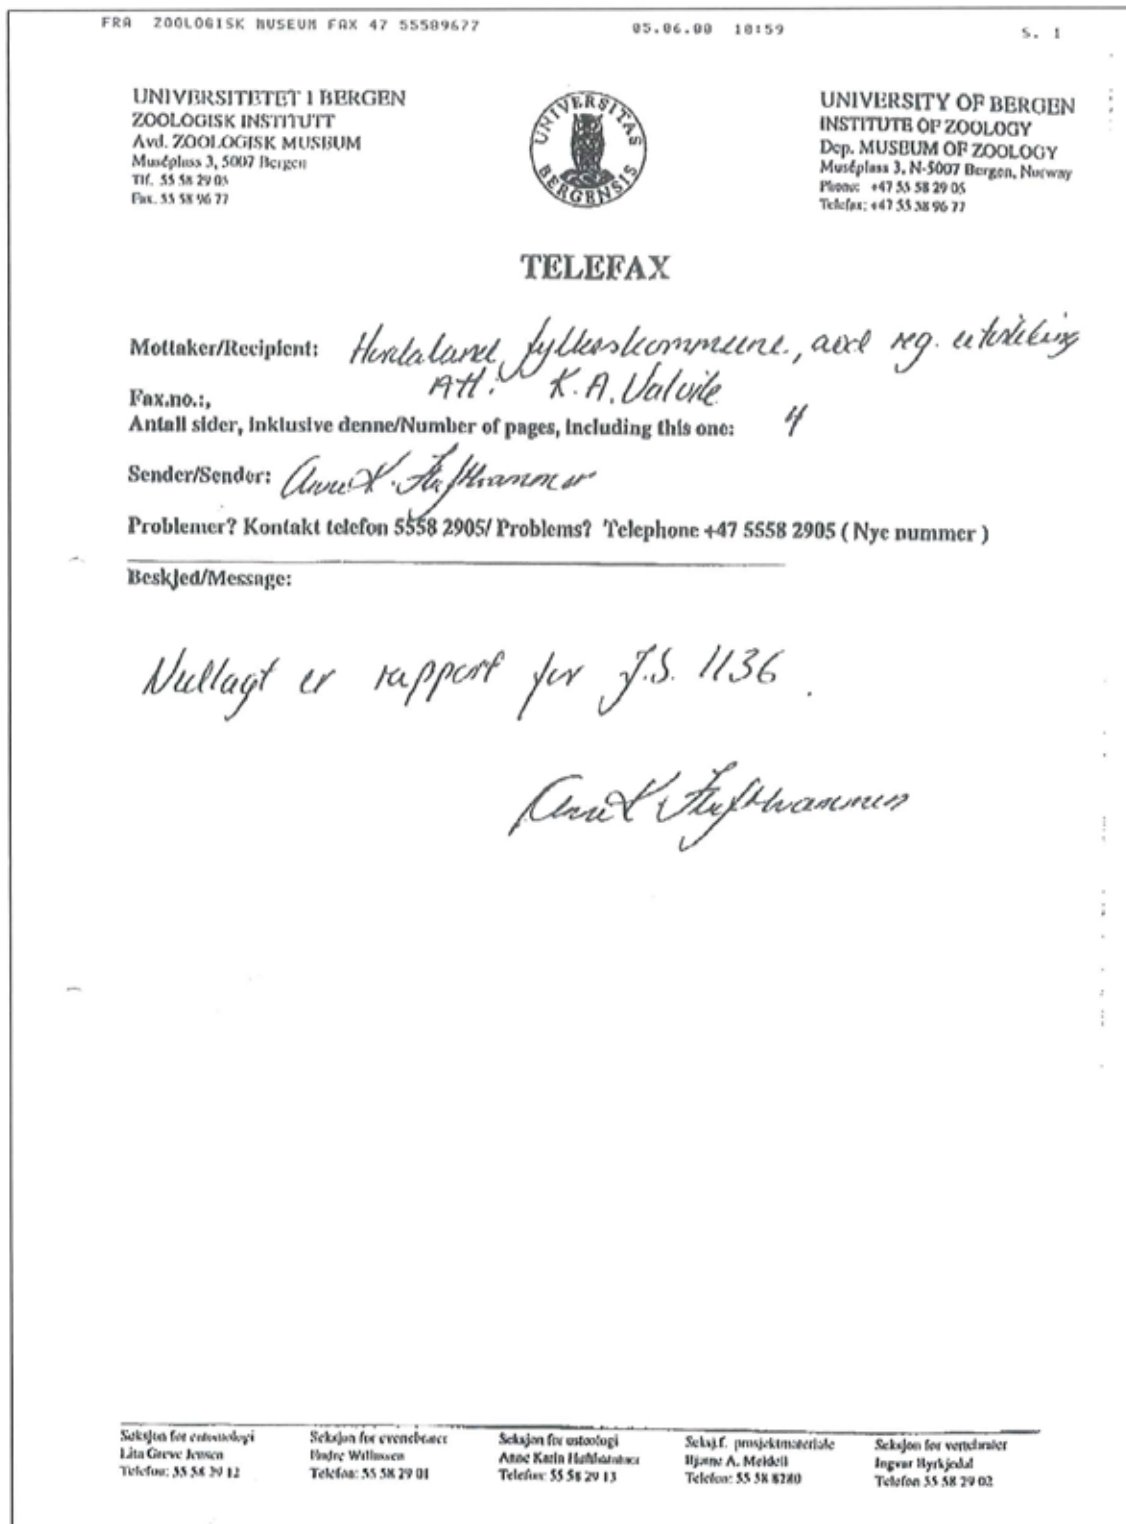 FRA ZOOLOGISK MUSEUM FAX 47 55589677 05.06.00 10:59 S. 1
UNIVERSITETET I BERGEN
ZOOLOGISK INSTITUTT
Avd. ZOOLOGISK MUSEUM
Muséplass 3, 5007 Bergen
Tlf. 55 58 29 05
Fax. 55 58 96 77
UNIVERSITAS BERGENSIS
UNIVERSITY OF BERGEN
INSTITUTE OF ZOOLOGY
Dep. MUSEUM OF ZOOLOGY
Muséplass 3, N-5007 Bergen, Norway
Phone: +47 55 58 29 05
Telefax: +47 55 58 96 77
TELEFAX
Mottaker/Recipient: Hordaland fylkeskommune, avd reg. utvikling
Att: K.A. Valvik
Fax.no.:,
Antall sider, inklusive denne/Number of pages, including this one: 4
Sender/Sender: Anne K. Hufthammer
Problemer? Kontakt telefon 5558 2905/ Problems? Telephone +47 5558 2905 ( Nye nummer )
Beskjed/Message:
Vedlagt er rapport for J.S. 1136.
Anne K Hufthammer
Seksjon for entomologi
Lita Greve Jensen
Telefon: 55 58 29 12
Seksjon for evertebrater
Endre Willassen
Telefon: 55 58 29 01
Seksjon for osteologi
Anne Karin Hufthammer
Telefon: 55 58 29 13
Seksj.f. prosjektmateriale
Bjarne A. Meidell
Telefon: 55 58 8280
Seksjon for vertebrater
Ingvar Byrkjedal
Telefon 55 58 29 02